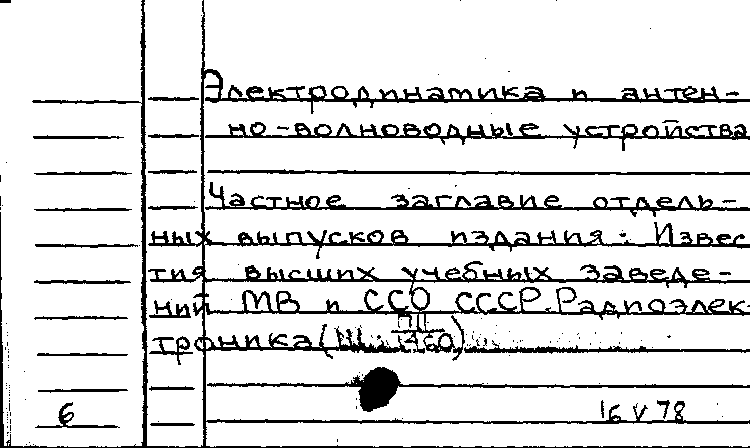 Электродинамика и антен-
но-волноводные устройства
Частное заглавие отдель-
ных выпусков издания: Извес
тия высших учебных заведе-
ний МВ и ССО СССР. Радиоэлек
троника (
П11
1460)
6
16 V 78